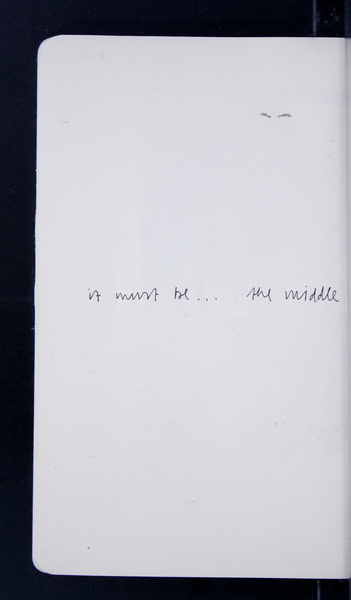 it must be... the middle